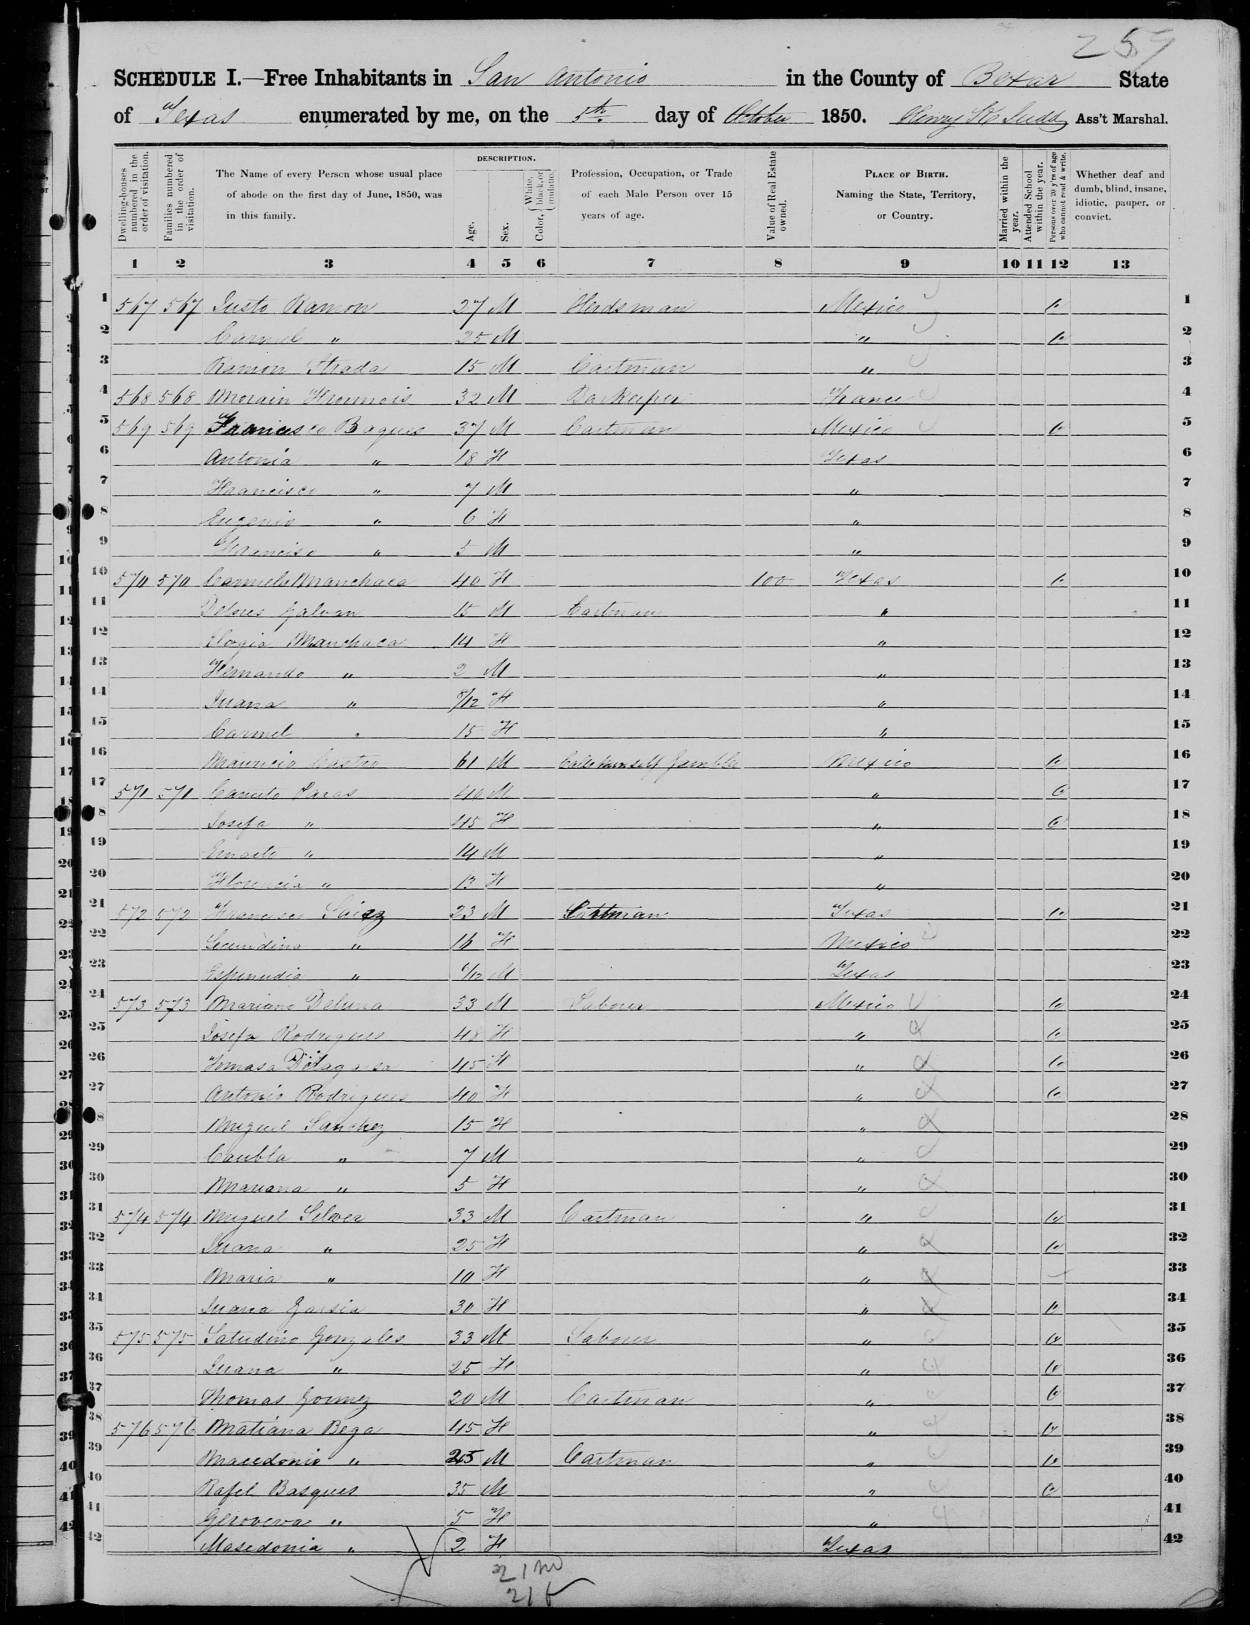 257
SCHEDULE I.—Free Inhabitants in San Antonio in the County of Bexar State
of Texas enumerated by me, on the 5th. day of October 1850. Henry Judd Ass't Marshal.
Dwelling-houses numbered in the order of visitation.
Families numbered in the order of visitation.
The Name of every Person whose usual place of abode on the first day of June, 1850, was in this family.
DESCRIPTION.
Age.
Sex.
Color, White, black, or mulatto.
Profession, Occupation, or Trade of each Male Person over 15 years of age.
Value of Real Estate owned.
PLACE OF BIRTH. Naming the State, Territory, or Country.
Married within the year.
Attended School within the year.
Persons over 20 y'rs of age who cannot read & write.
Whether deaf and dumb, blind, insane, idiotic, pauper, or convict.
1 2 3 4 5 6 7 8 9 10 11 12 13
1 567 567 Justo Ramon 27 M Herdsman Mexico 1
2 Carmel " 25 M " 2
3 Ramon Strada 15 M Cartman " 3
4 568 568 32 M Barkeeper France 4
5 569 569 Francisco Baques 37 M Cartman Mexico 5
6 Antonia " 18 F Texas 6
7 Francisco " 7 M " 7
8 Eugenio " 6 F " 8
9 Francisco " 5 M " 9
10 570 570 Carmela Manchaca 40 F 100 Texas 10
11 Dolores Galvan 15 M Cartman " 11
12 Manchaca 14 F " 12
13 Fernando " 2 M " 13
14 Juana " /12 F " 14
15 Carmel " 15 F " 15
16 Mauricio Castro 61 M Calls himself Gambler Mexico 16
17 571 571 Canuto Paras 40 M " 17
18 Josefa " 45 F " 18
19 " 14 M " 19
20 Florencia " 13 F " 20
21 572 572 Francisco Saiez 23 M Cartman Texas 21
22 Secundina " 16 F Mexico 22
23 " /12 M Texas 23
24 573 573 Mariano Deluna 33 M Laborer Mexico 24
25 Josefa Rodrigues 40 F " 25
26 Tomasa 45 F " 26
27 Antonio Rodrigues 40 F " 27
28 Miguel Sanchez 15 F " 28
29 " 7 M " 29
30 Mariana " 5 F " 30
31 574 574 Miguel Silver 33 M Cartman " 31
32 Juana " 25 F " 32
33 Maria " 10 F " 33
34 Juana Garsia 30 F " 34
35 575 575 Saludino Gonzales 33 M Laborer " 35
36 Juana " 25 F " 36
37 Thomas Gomez 20 M Cartman " 37
38 576 576 Matiana Bega 45 F " 38
39 Macedonio " 25 M Cartman " 39
40 Rafel Basques 35 M " 40
41 Genoveva " 5 F " 41
42 Masedonia " 2 F Texas 42
21 m
21 f